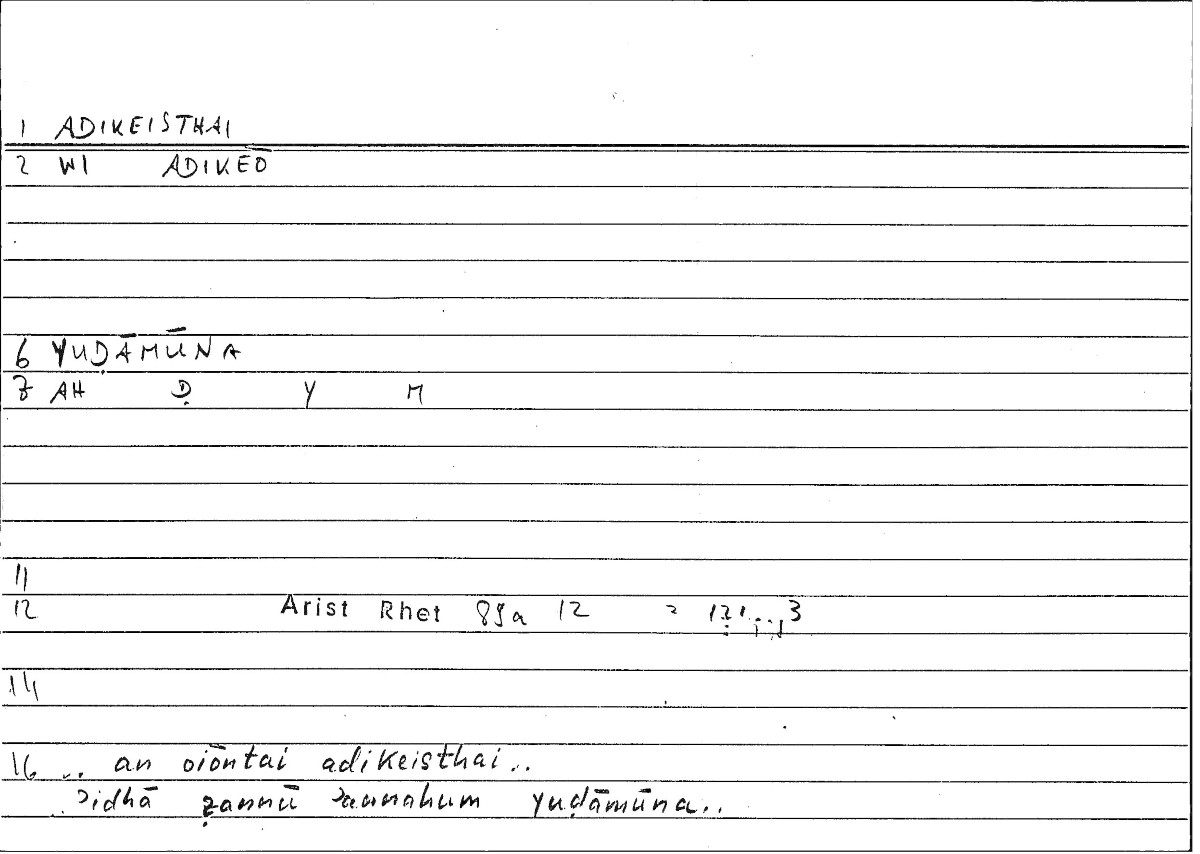 1 ADIKEISTHAI
2 WI ADIKEŌ
6 YUḌĀMŪNA
7 AH Ḍ Y M
11
12 Arist Rhet 89a 12 =
14
16 .. an oiōntai adikeisthai..
ʾidhā ẓannū ʾannahum yuḍāmūna..